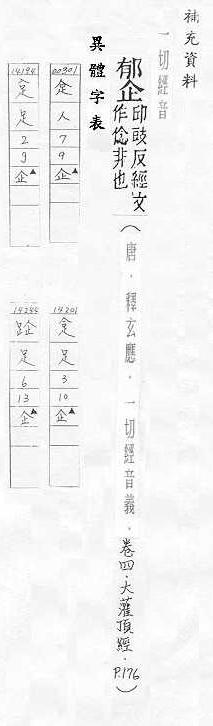 補充資料
一切經音
郁企
卬豉反經文
作非也
（唐．釋玄應．一切經音義．卷四．大灌頂經．P.176）
異體字表
00301
人
7
9
企▲
14194
足
2
9
企▲
14201
足
3
10
企▲
足
6
13
企▲